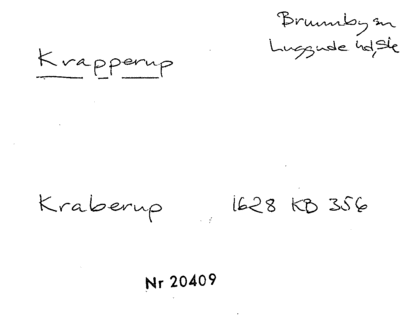 Krapperup
Brunnby sn
Luggude hd, Sk
Kraberup 1628 KB 356
Nr 20409